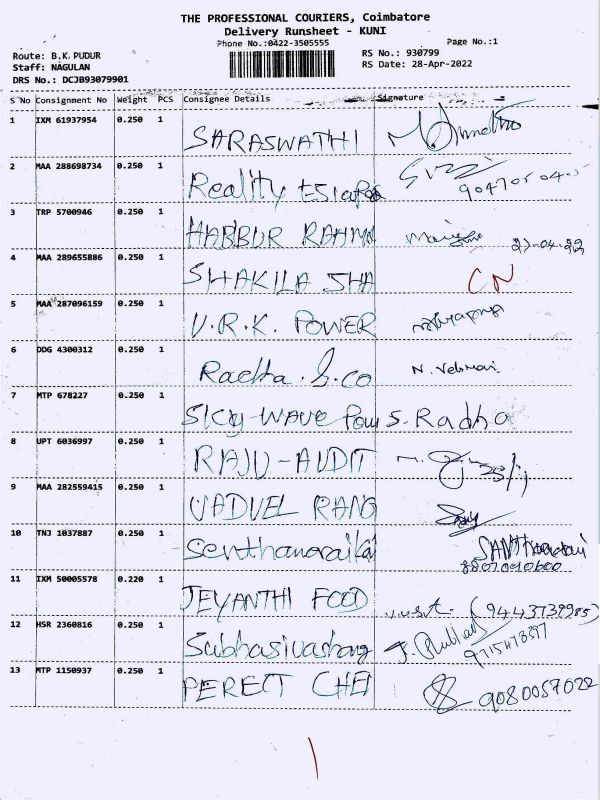 THE PROFESSIONAL COURIERS, Coimbatore
Delivery Runsheet - KUNI
Phone No.:0422-3505555
Page No.:1
Route: B.K.PUDUR
RS No.: 930799
Staff: NAGULAN
RS Date: 28-Apr-2022
DRS No.: DCJB93079901
S No Consignment No Weight PCS Consignee Details Signature
1 IXM 61937954 0.250 1 SARASWATHI
2 MAA 288698734 0.250 1 Reality
3 TRP 5700946 0.250 1 HABBUR RAHMA
4 MAA 289655886 0.250 1 SHAKILA SHA CN
5 MAA 287096159 0.250 1 V.R.K. POWER
6 DDG 4300312 0.250 1 Radha
7 MTP 678227 0.250 1 Sky-wave Pow S. Radha
8 UPT 6036997 0.250 1 RAJU-AUDIT
9 MAA 282559415 0.250 1 VADUEL RANG
10 TNJ 1037887 0.250 1
11 IXM 50005578 0.220 1 JEYANTHI FOOD
12 HSR 2360816 0.250 1
13 MTP 1150937 0.250 1 PERECT CHEI 9080057022